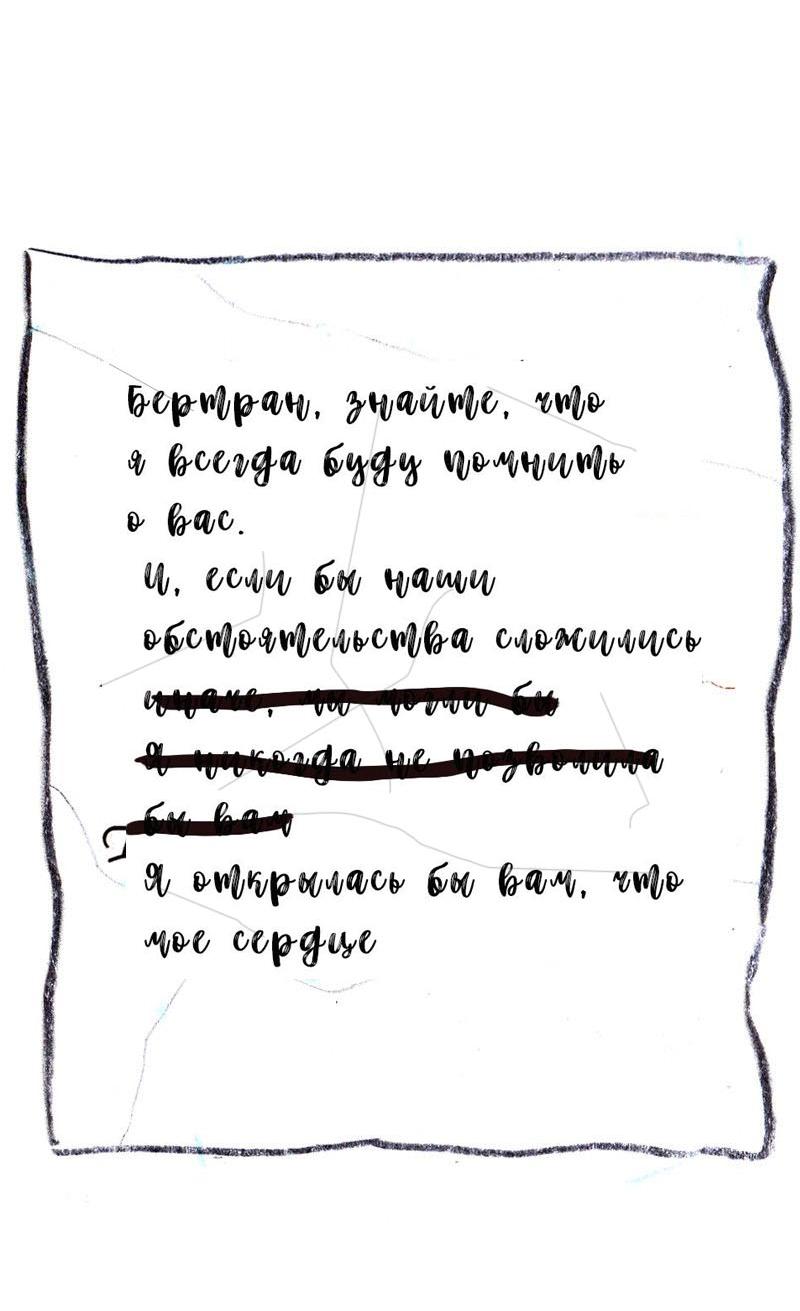 Бертран, знайте, что
я всегда буду помнить
о вас.
И, если бы наши
обстоятельства сложились
иначе, мы могли бы
Я никогда не позволила
бы вам
Я открылась бы вам, что
мое сердце